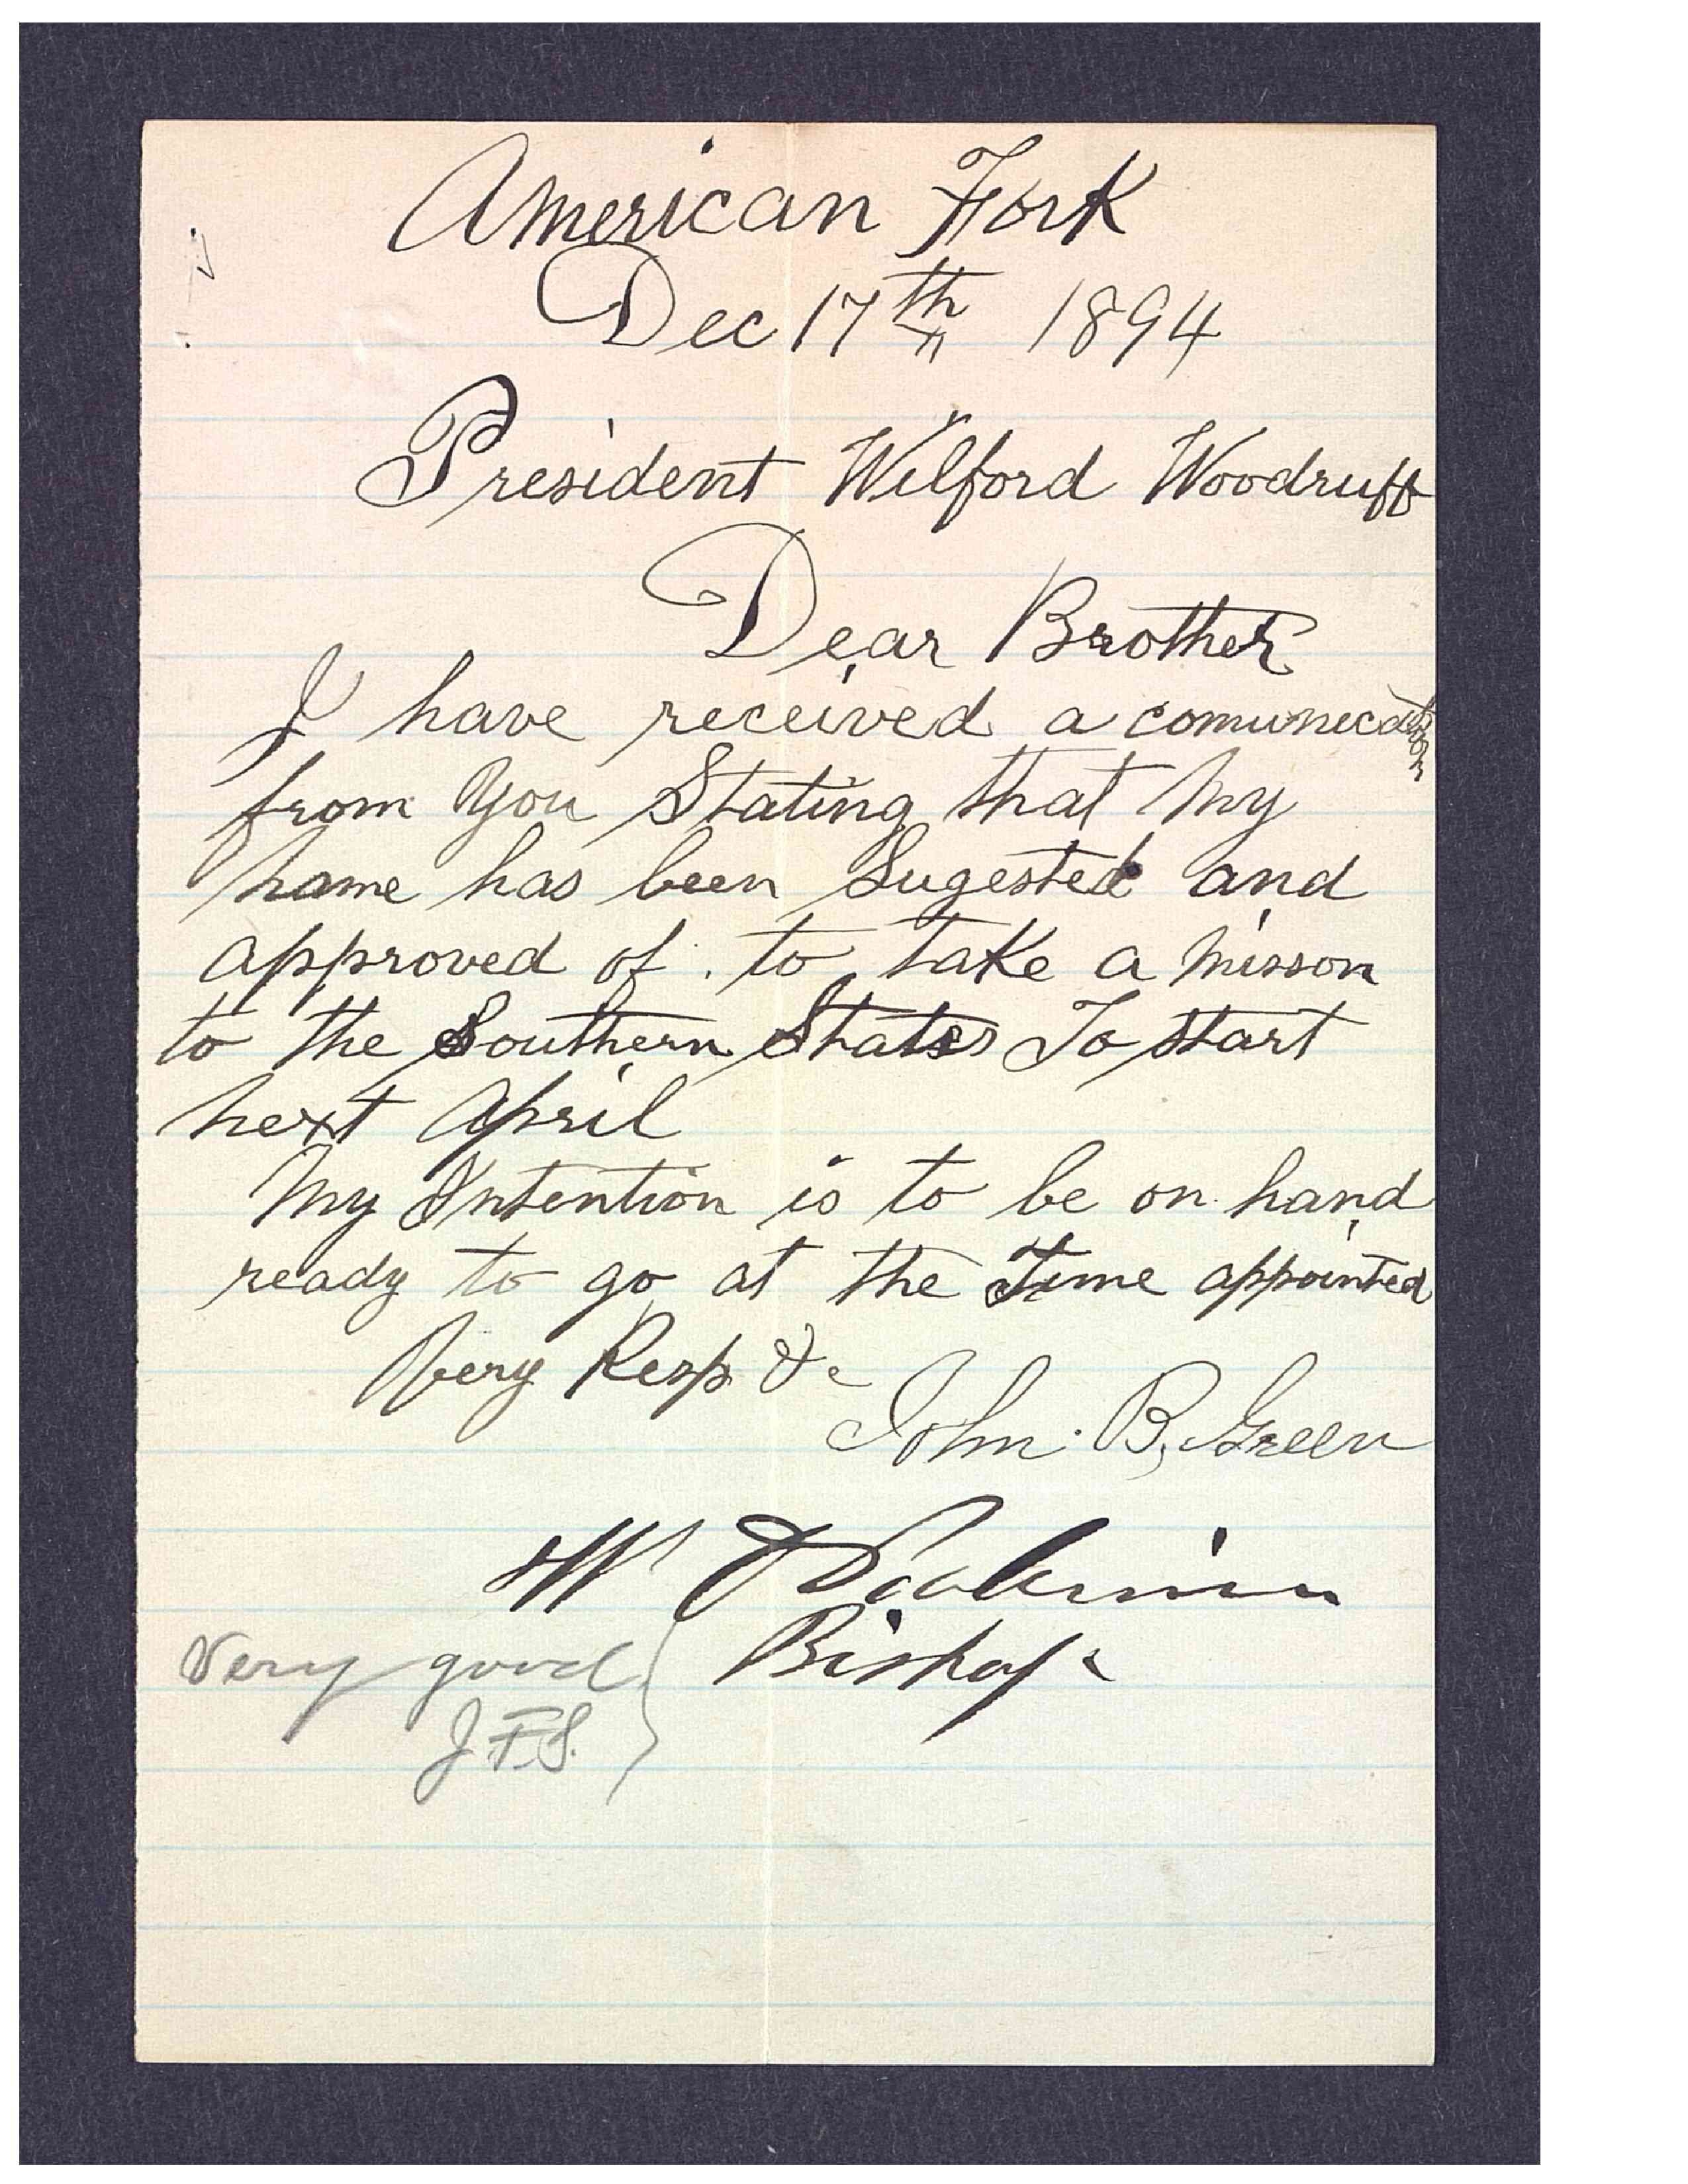 American Fork
Dec 17th 1894
President Wilford Woodruff
Dear Brother
I have received a comunecation
from You Stating that My
name has been Sugested and
approved of. to take a misson
to the Southern States To start
next April
My Intention is to be on hand
ready to go at the Time appointed
Very Resp &c
John. B, Green
W
Bishop
Very good
J.F.S.